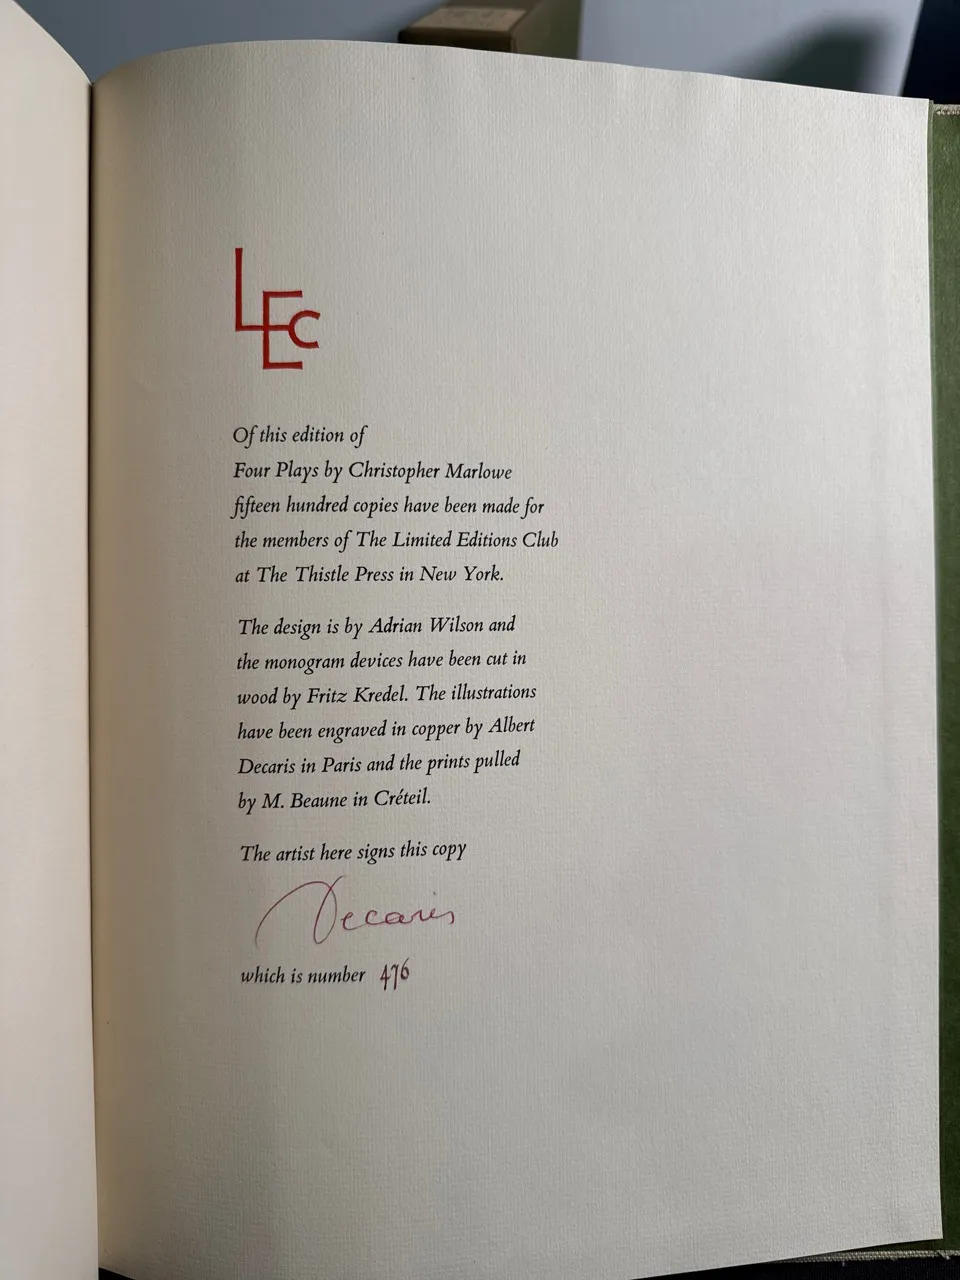 LEC
Of this edition of
Four Plays by Christopher Marlowe
fifteen hundred copies have been made for
the members of The Limited Editions Club
at The Thistle Press in New York.
The design is by Adrian Wilson and
the monogram devices have been cut in
wood by Fritz Kredel. The illustrations
have been engraved in copper by Albert
Decaris in Paris and the prints pulled
by M. Beaune in Créteil.
The artist here signs this copy
Decaris
which is number 476